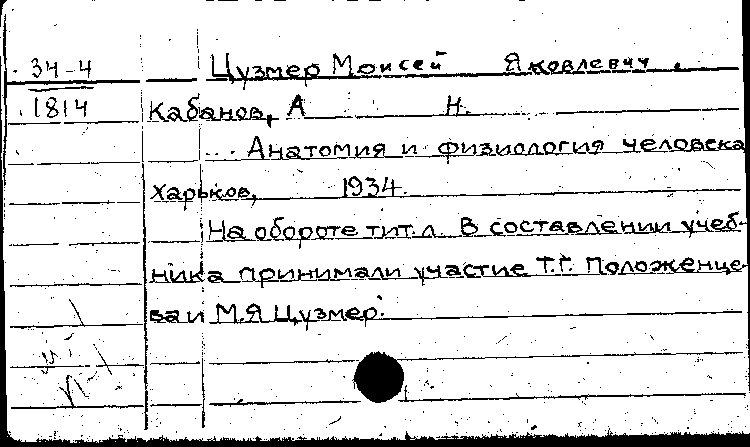 34-4 Цузмер Моисей Яковлевич.
1814 Кабанов, А Н.
... Анатомия и физиология человека
Харьков, 1934.
На обороте тит.л. В составлении учеб-
ника принимали участие Т.Г. Положенце-
ва и М.Я Цузмер.